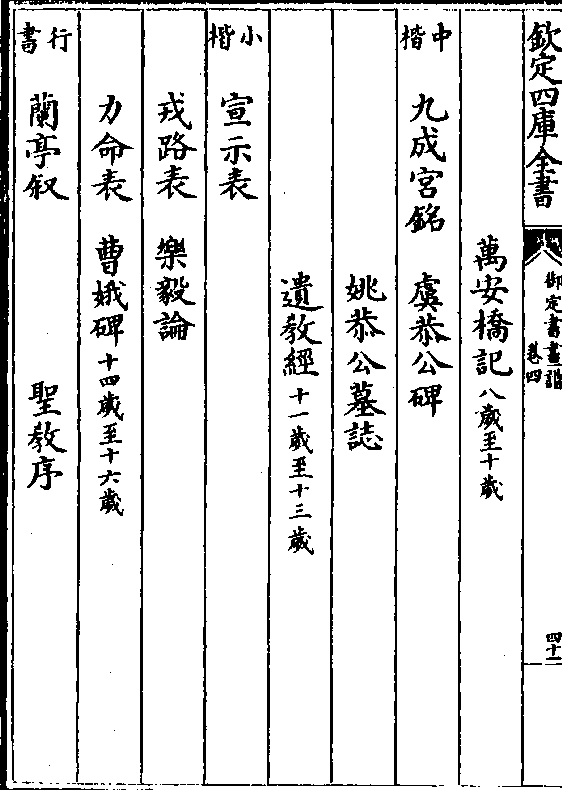 欽定四庫全書
御定書畫譜
卷四
四十一
萬安橋記八歲至十歲
中楷
九成宮銘 虞恭公碑
姚恭公墓誌
遺敎經十一歲至十三歲
小楷
宣示表
戎路表 樂毅論
力命表 曹娥碑十四歲至十六歲
行書
蘭亭叙 聖敎序